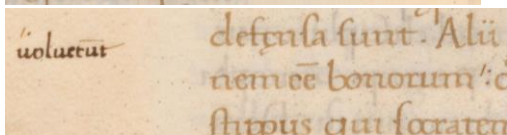 uoluerūt
defęnsa sunt. Alii
nem eē bonorum :
stirpis qui socratem